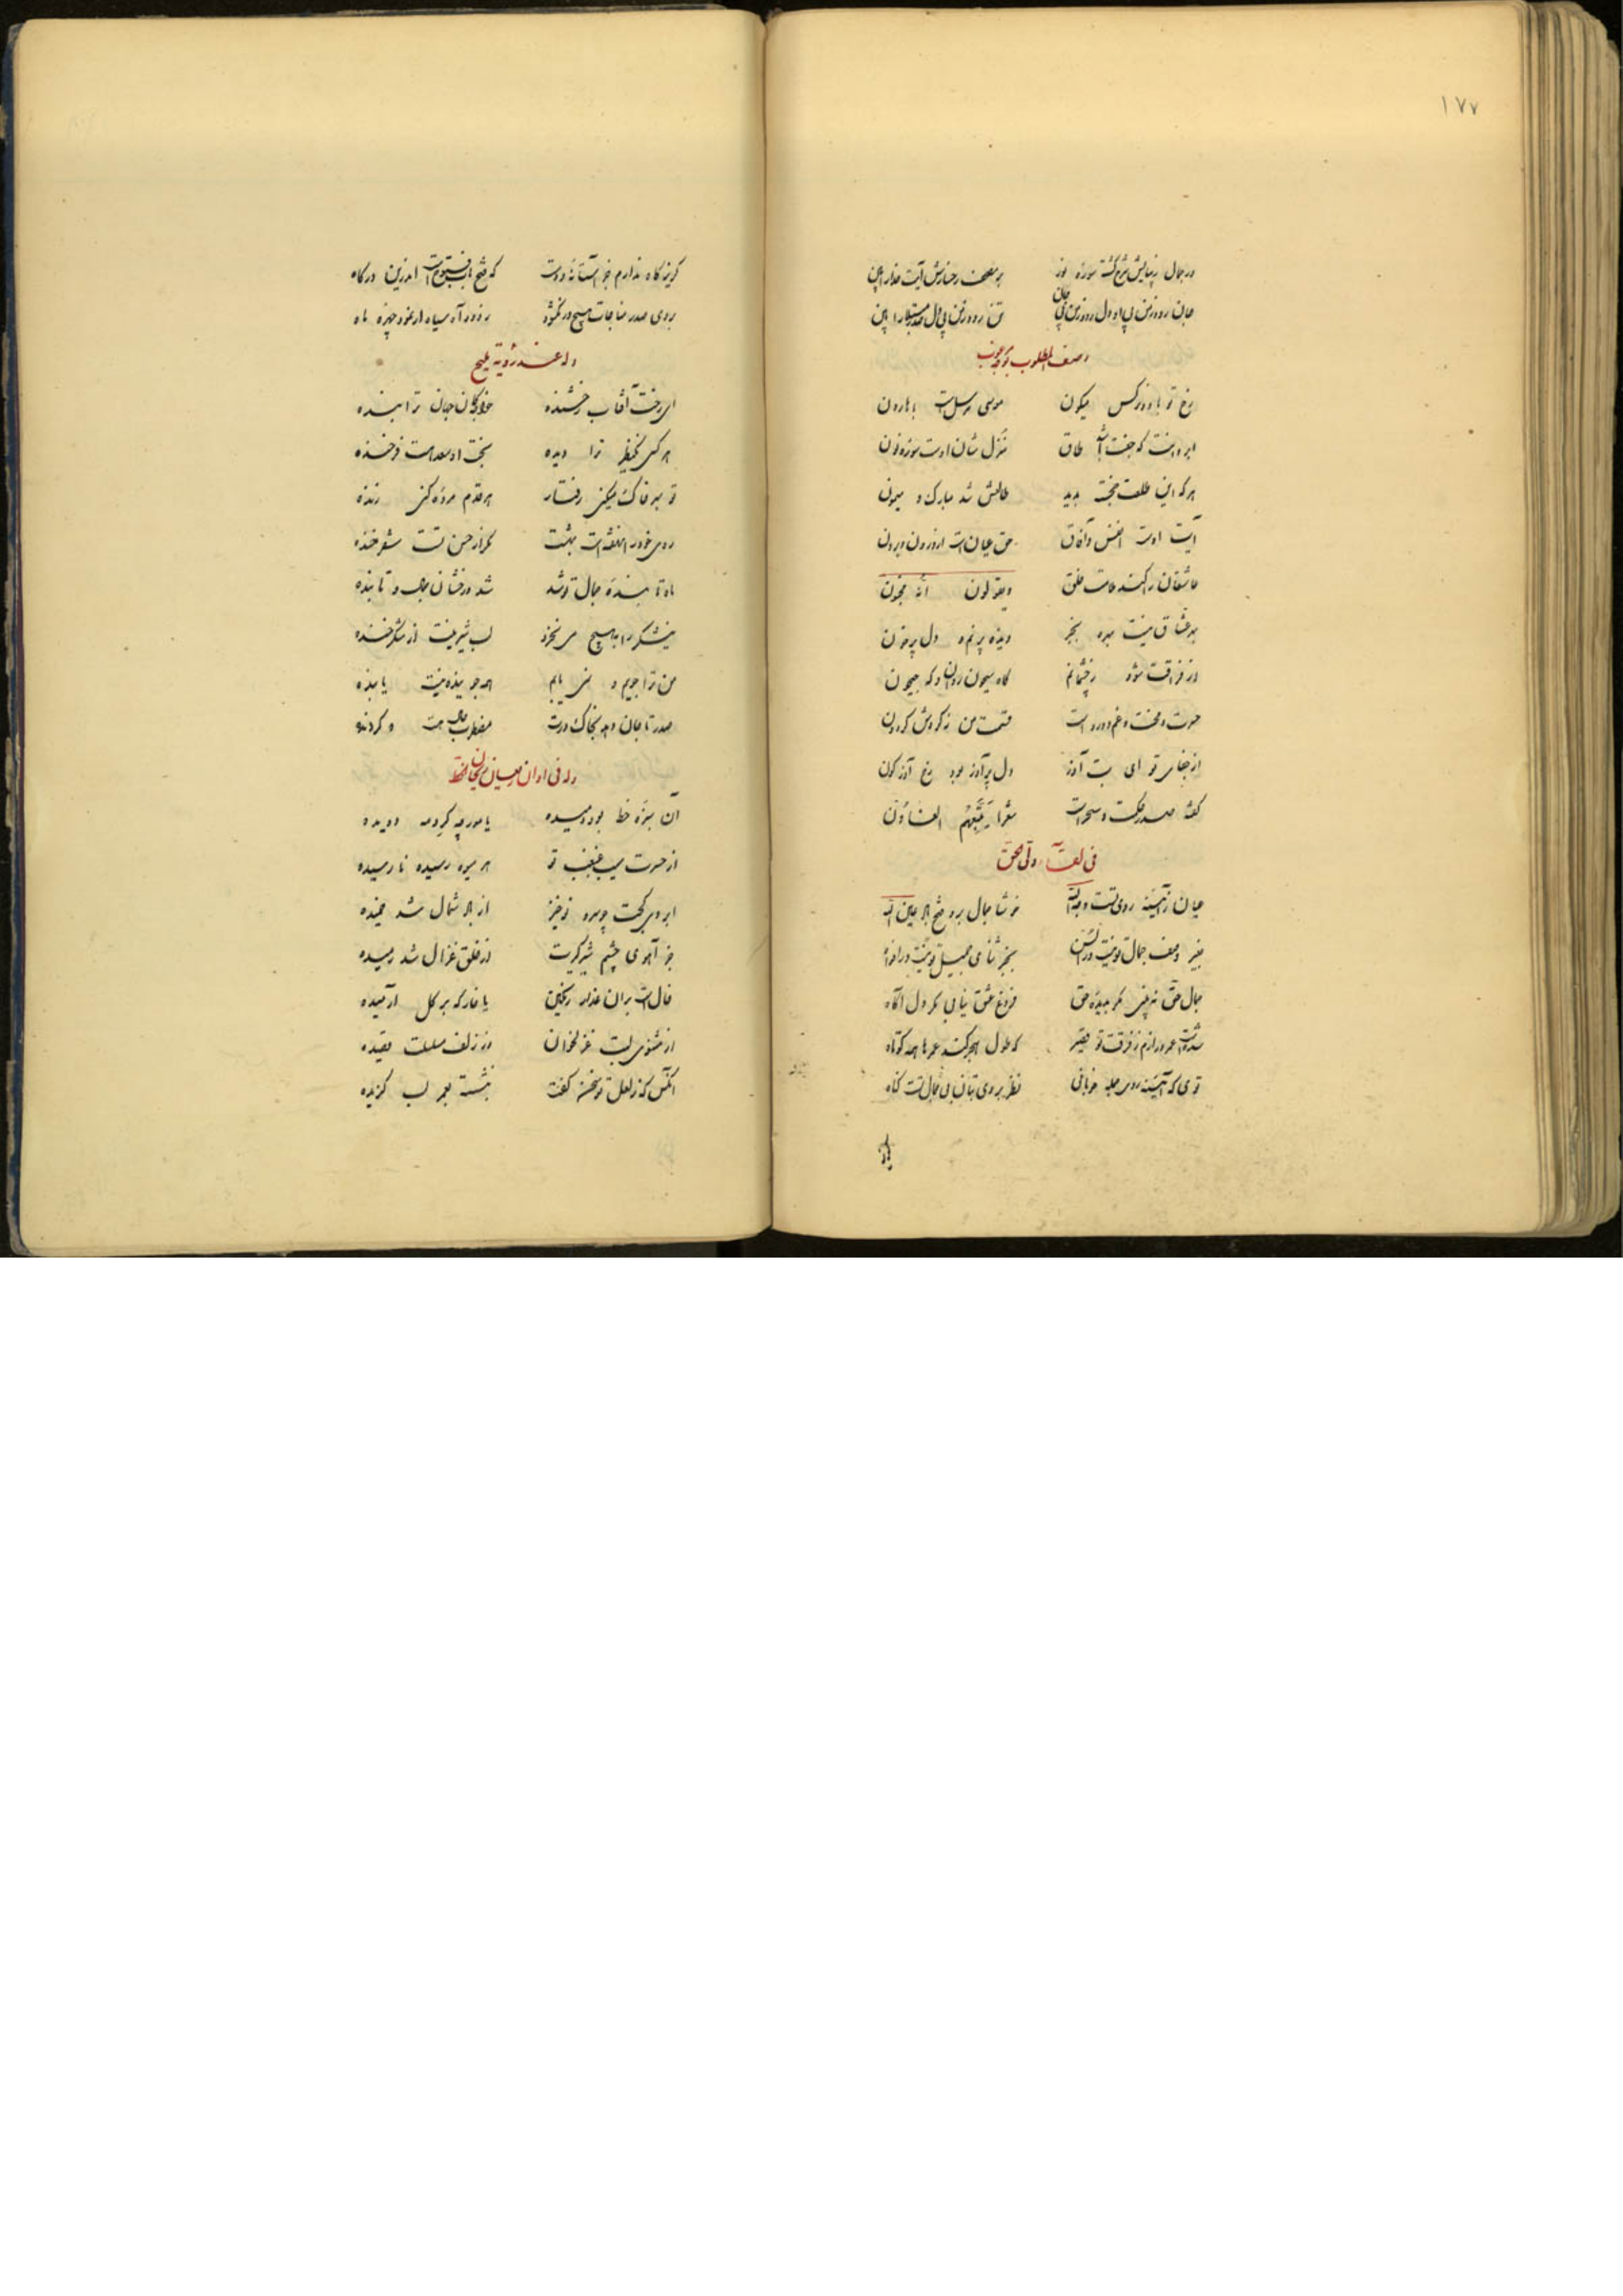 ۱۷۷
در جمال زیبایش شرح گشته سوره نور بر صحف رخسارش آیت خدا را بین
جان رود ز من دل رود ز من تن رود ز من بین
وصف المطلوب بوجه مرغوب
رخ تو با دو نرکس میکون موسی مرسل است با هارون
ابرویت که جفت آمد طاق منزل شان اوست سوره نون
هر که این طلعت خجسته بدید طالعش شد مبارک و میمون
آیت اوست انفس و آفاق حق عیان است از درون و برون
عاشقان را کنند ملامت خلق و یقولون انه مجنون
بهر عشاق نیست بهره بجز دیده پر نم و دل پر خون
در فراقت شود ز چشمانم گاه سیحون روان و که جیحون
حسرت و محنت و غم و درد است قسمت من ز کردش کردون
از جفای تو ای بت آذر دل پر آذر بود رخ آذرکون
گفته صدر حکمت و سحر است شعرا یتبعهم الغاوون
فی لقاء وقی الحق
عیان ز آینه روی تست وجه الله خوشا جمال بر و صبح
بغیر وصف جمال تو نیست در السن بجز ثنای جمیل تو نیست در افواه
جمال حق نه ببینی مگر بدیده حق فروغ عشق نیابی مگر دل آگاه
شدست عمر درازم ز فرقت تو قصیر که طول هجر کند عمرها همه کوتاه
توی که آینه روی جمله خوبانی نظر بروی بتان بی جمال تست کناه
کریزکاه ندارم بجز آستانه دوست که فتح باب اندرین درکاه
بروی صدر مناجات هیچ در نکشود ز دود آه سیاه ار نمود چهره ماه
وله عند رؤیة ملیح
ای رخت آفتاب رخشنده خواجکان جهان ترا بنده
هر کسی یک نظر ترا دیده بخت او سعد هست فرخنده
تو بهر خاک میکنی رفتار هر قدم مرده کنی زنده
روی خود را نهفته است بهشت مکر از حسن تست شرمنده
ماه تا بنده جمال تو شد شد درخشان بمهر و تابنده
نیشکر را به هیچ می نخرد لب شیرینت از شکرخنده
من ترا جویم و نمی یابم هر جوینده نیست یابنده
صدر تا جان دهد بخاک درت مضطرب حال هست و کردنده
وله فی اوان ریحان الخط
آن سبزه خط بود دمیده یا مورچه گرد مه دویده
از حسرت سیب غبغب تو هر میوه رسیده نارسیده
ابروی کجت چو سرو نوخیز از باد شمال شد خمیده
جز آهوی چشم شیرکیرت از خلق غزال شد رمیده
خال است بران عذار رنکین یا خار که بر کل آرمیده
از مثنوی لبت غزلخوان وز زلف مسلسلت قصیده
آنکس که ز لعل تو سخن گفت بنشسته بعمر لب کزیده